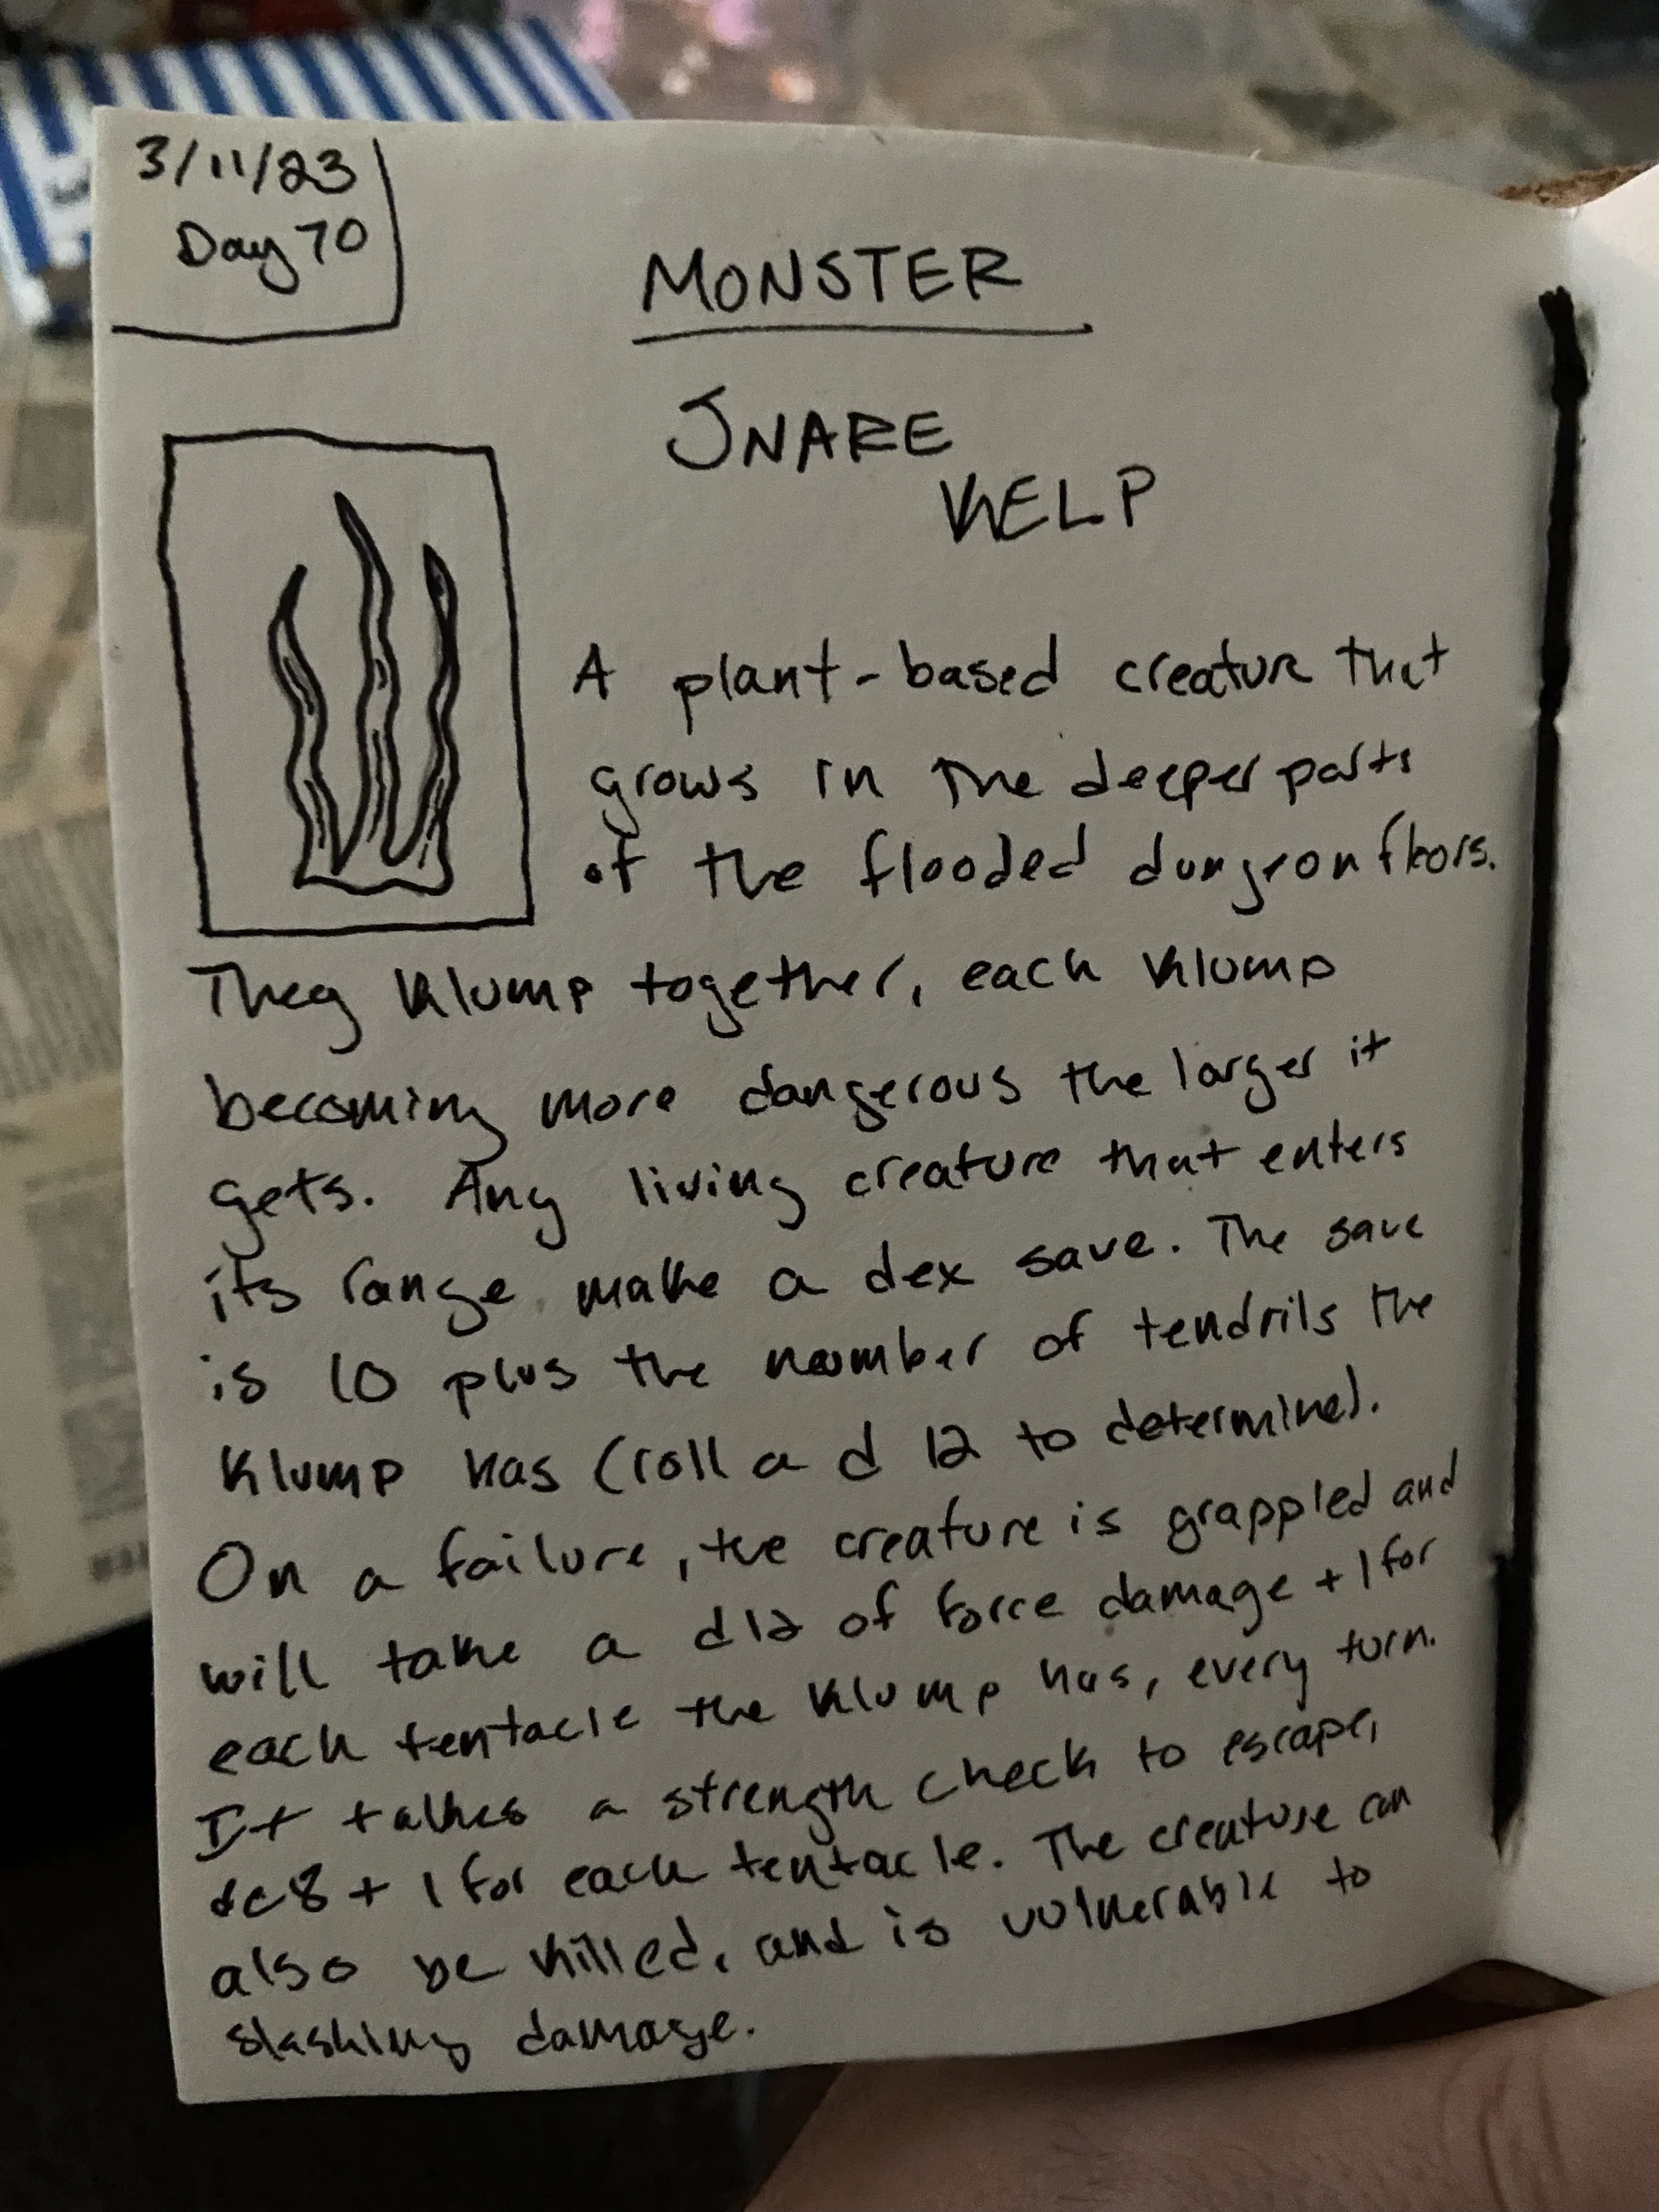 3/11/23
Day 70
MONSTER
SNARE
KELP
A plant-based creature that
grows in the deeper parts
of the flooded dungeon floors.
They Klump together, each Klump
becoming more dangerous the larger it
gets. Any living creature that enters
its range make a dex save. The save
is 10 plus the number of tendrils the
Klump has (roll a d12 to determine).
On a failure, the creature is grappled and
will take a d12 of force damage +1 for
each tentacle the Klump has, every turn.
It takes a strength check to escape,
dc8 + 1 for each tentacle. The creature can
also be killed, and is vulnerable to
slashing damage.